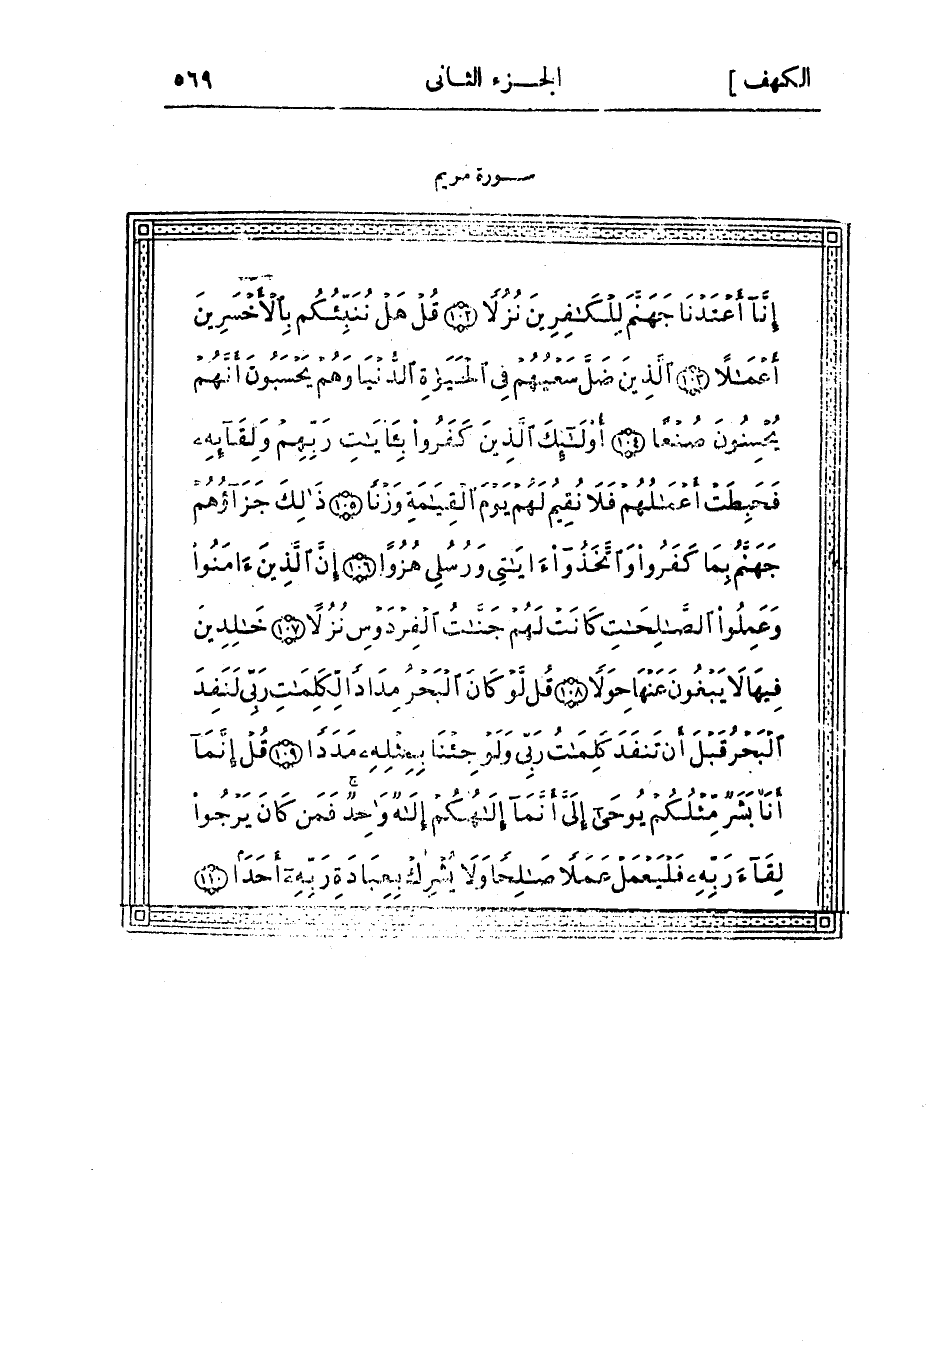 الكهف ]
الجـزء الثـانى
٥٦٩
سـورة مريم
إِنَّآ أَعۡتَدۡنَا جَهَنَّمَ لِلۡكَٰفِرِينَ نُزُلًا ١٠٢ قُلۡ هَلۡ نُنَبِّئُكُم بِٱلۡأَخۡسَرِينَ
أَعۡمَٰلًا ١٠٣ ٱلَّذِينَ ضَلَّ سَعۡيُهُمۡ فِى ٱلۡحَيَوٰةِ ٱلدُّنۡيَا وَهُمۡ يَحۡسَبُونَ أَنَّهُمۡ
يُحۡسِنُونَ صُنۡعًا ١٠٤ أُوْلَٰٓئِكَ ٱلَّذِينَ كَفَرُواْ بِـَٔايَٰتِ رَبِّهِمۡ وَلِقَآئِهِۦ
فَحَبِطَتۡ أَعۡمَٰلُهُمۡ فَلَا نُقِيمُ لَهُمۡ يَوۡمَ ٱلۡقِيَٰمَةِ وَزۡنًا ١٠٥ ذَٰلِكَ جَزَآؤُهُمۡ
جَهَنَّمُ بِمَا كَفَرُواْ وَٱتَّخَذُوٓاْ ءَايَٰتِى وَرُسُلِى هُزُوًا ١٠٦ إِنَّ ٱلَّذِينَ ءَامَنُواْ
وَعَمِلُواْ ٱلصَّٰلِحَٰتِ كَانَتۡ لَهُمۡ جَنَّٰتُ ٱلۡفِرۡدَوۡسِ نُزُلًا ١٠٧ خَٰلِدِينَ
فِيهَا لَا يَبۡغُونَ عَنۡهَا حِوَلًا ١٠٨ قُل لَّوۡ كَانَ ٱلۡبَحۡرُ مِدَادًا لِّكَلِمَٰتِ رَبِّى لَنَفِدَ
ٱلۡبَحۡرُ قَبۡلَ أَن تَنفَدَ كَلِمَٰتُ رَبِّى وَلَوۡ جِئۡنَا بِمِثۡلِهِۦ مَدَدًا ١٠٩ قُلۡ إِنَّمَآ
أَنَا۠ بَشَرٌ مِّثۡلُكُمۡ يُوحَىٰٓ إِلَىَّ أَنَّمَآ إِلَٰهُكُمۡ إِلَٰهٌ وَٰحِدٌ ۖ فَمَن كَانَ يَرۡجُواْ
لِقَآءَ رَبِّهِۦ فَلۡيَعۡمَلۡ عَمَلًا صَٰلِحًا وَلَا يُشۡرِكۡ بِعِبَادَةِ رَبِّهِۦٓ أَحَدًۢا ١١٠